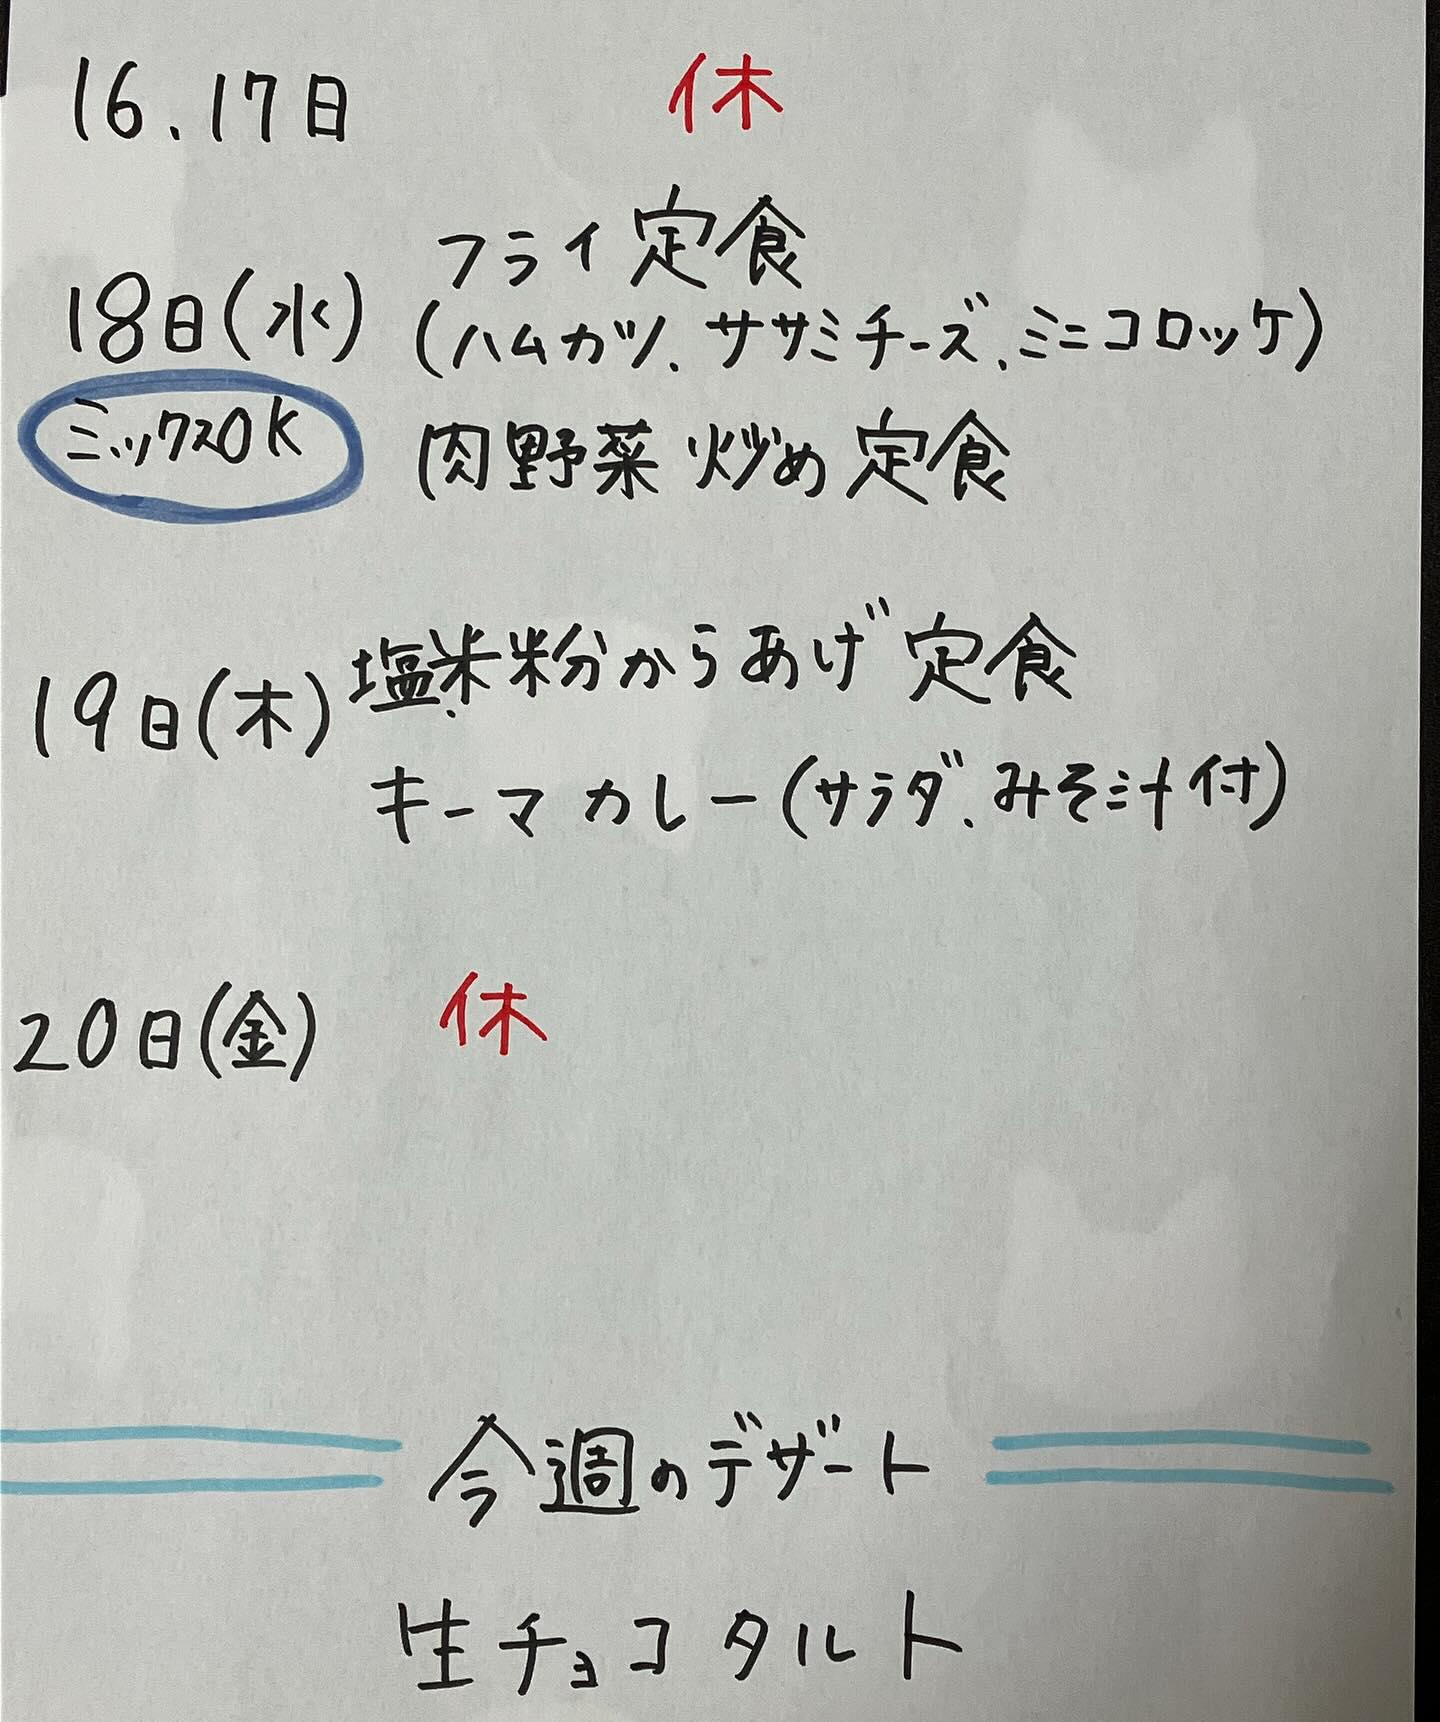 16.17日 休
フライ定食
18日(水) (ハムカツ、ササミチーズ、ミニコロッケ)
ミックスOK 肉野菜炒め定食
塩米粉からあげ定食
19日(木)
キーマカレー(サラダ、みそ汁付)
20日(金) 休
今週のデザート
生チョコタルト